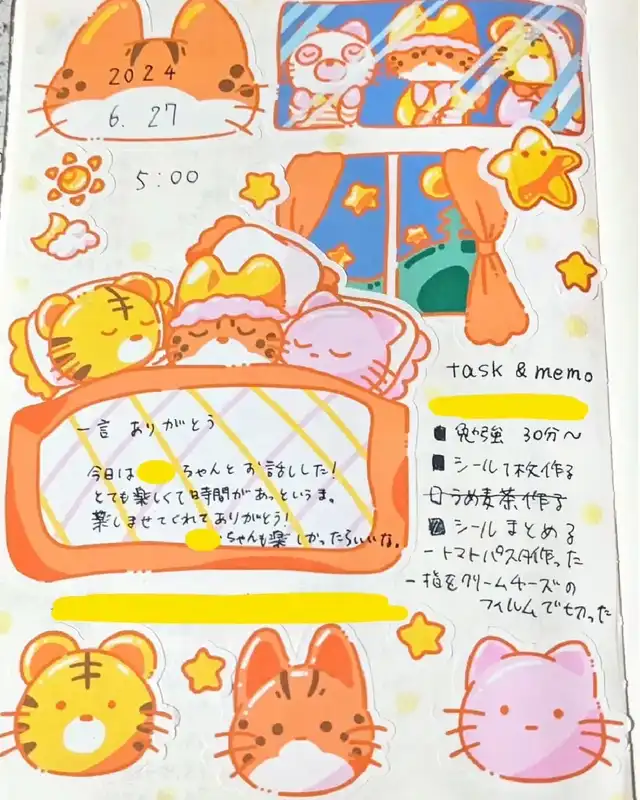 2024
6. 27
5:00
一言 ありがとう
今日は ちゃんと お話しした!
とても楽しくて時間があっという間。
楽しませてくれてありがとう!
ちゃんも楽しかったらいいな。
task & memo
勉強 30分〜
シール1枚作る
うめ麦茶作る
シールまとめる
- トマトパスタ作った
- 指をクリームチーズの
フィルムで切った